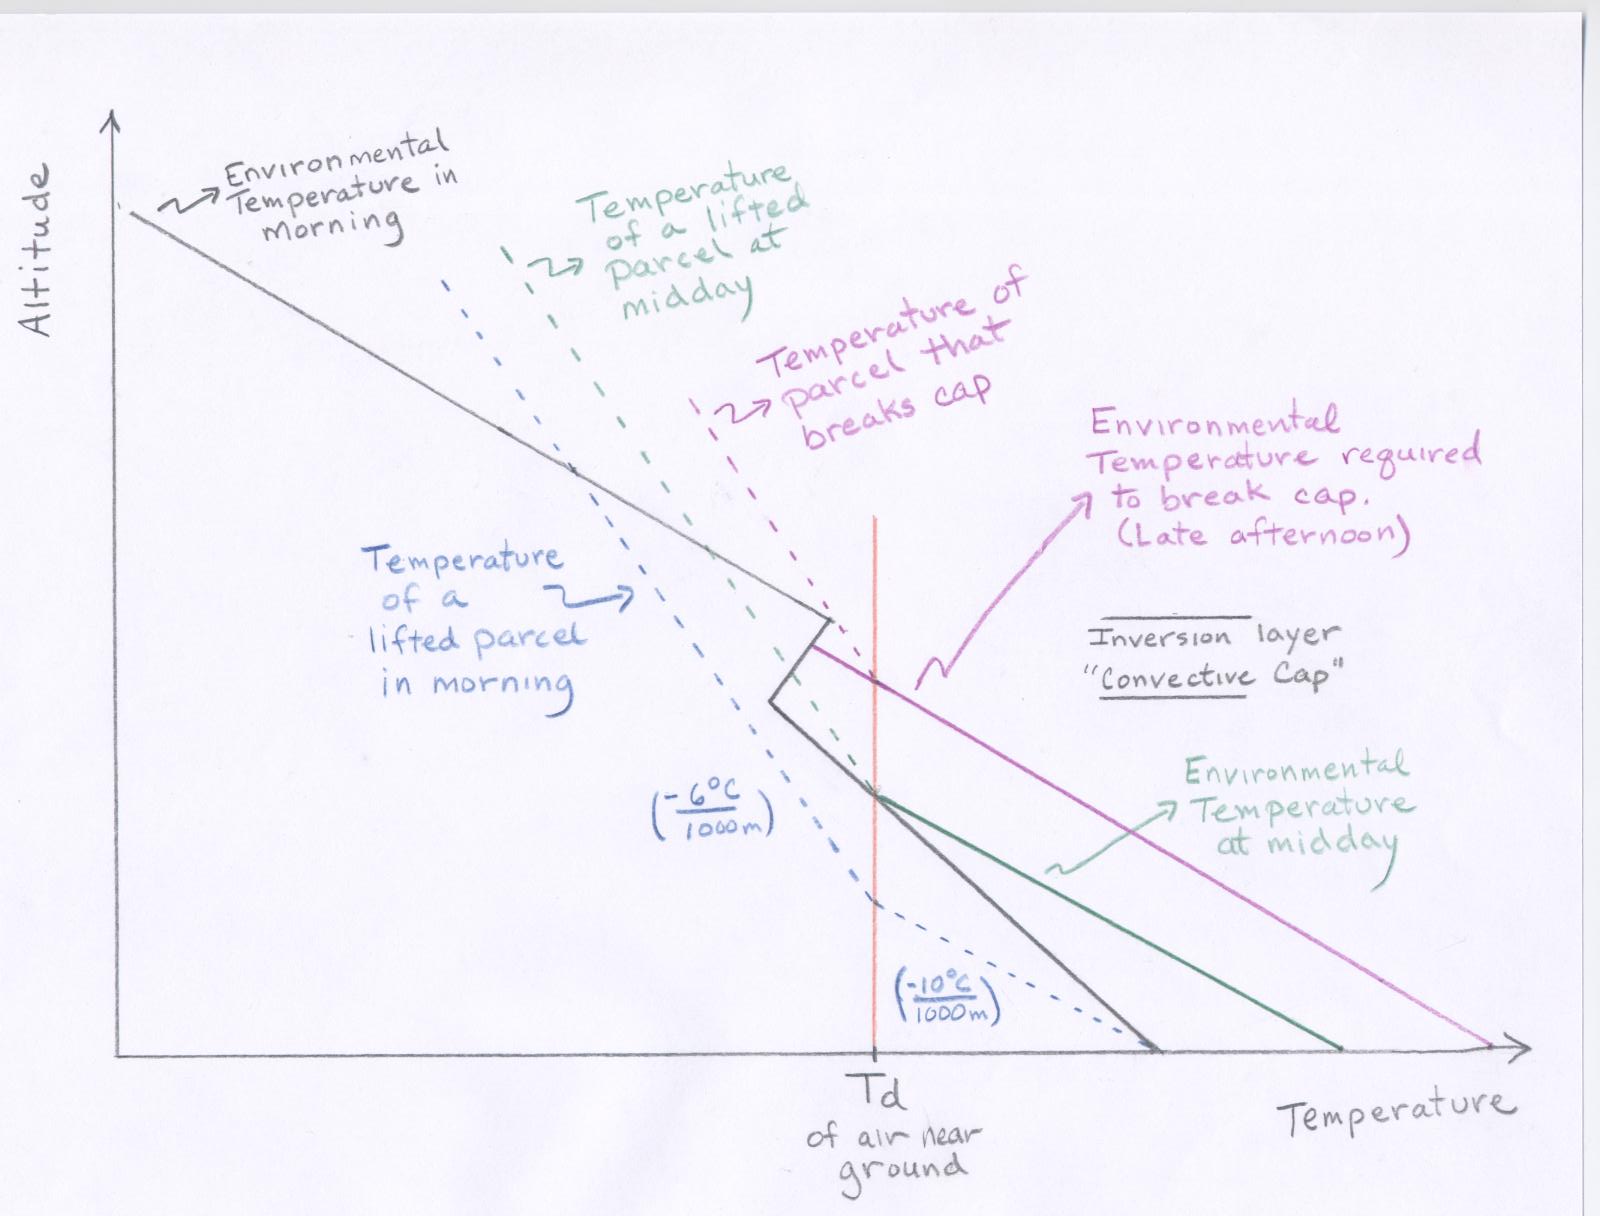 Altitude
Environmental
Temperature in
morning
Temperature
of a lifted
parcel at
midday
Temperature of
parcel that
breaks cap
Environmental
Temperature required
to break cap.
(Late afternoon)
Temperature
of a
lifted parcel
in morning
Inversion layer
"Convective Cap"
Environmental
Temperature
at midday
(-6°C
1000m)
(-10°C
1000m)
Td
of air near
ground
Temperature